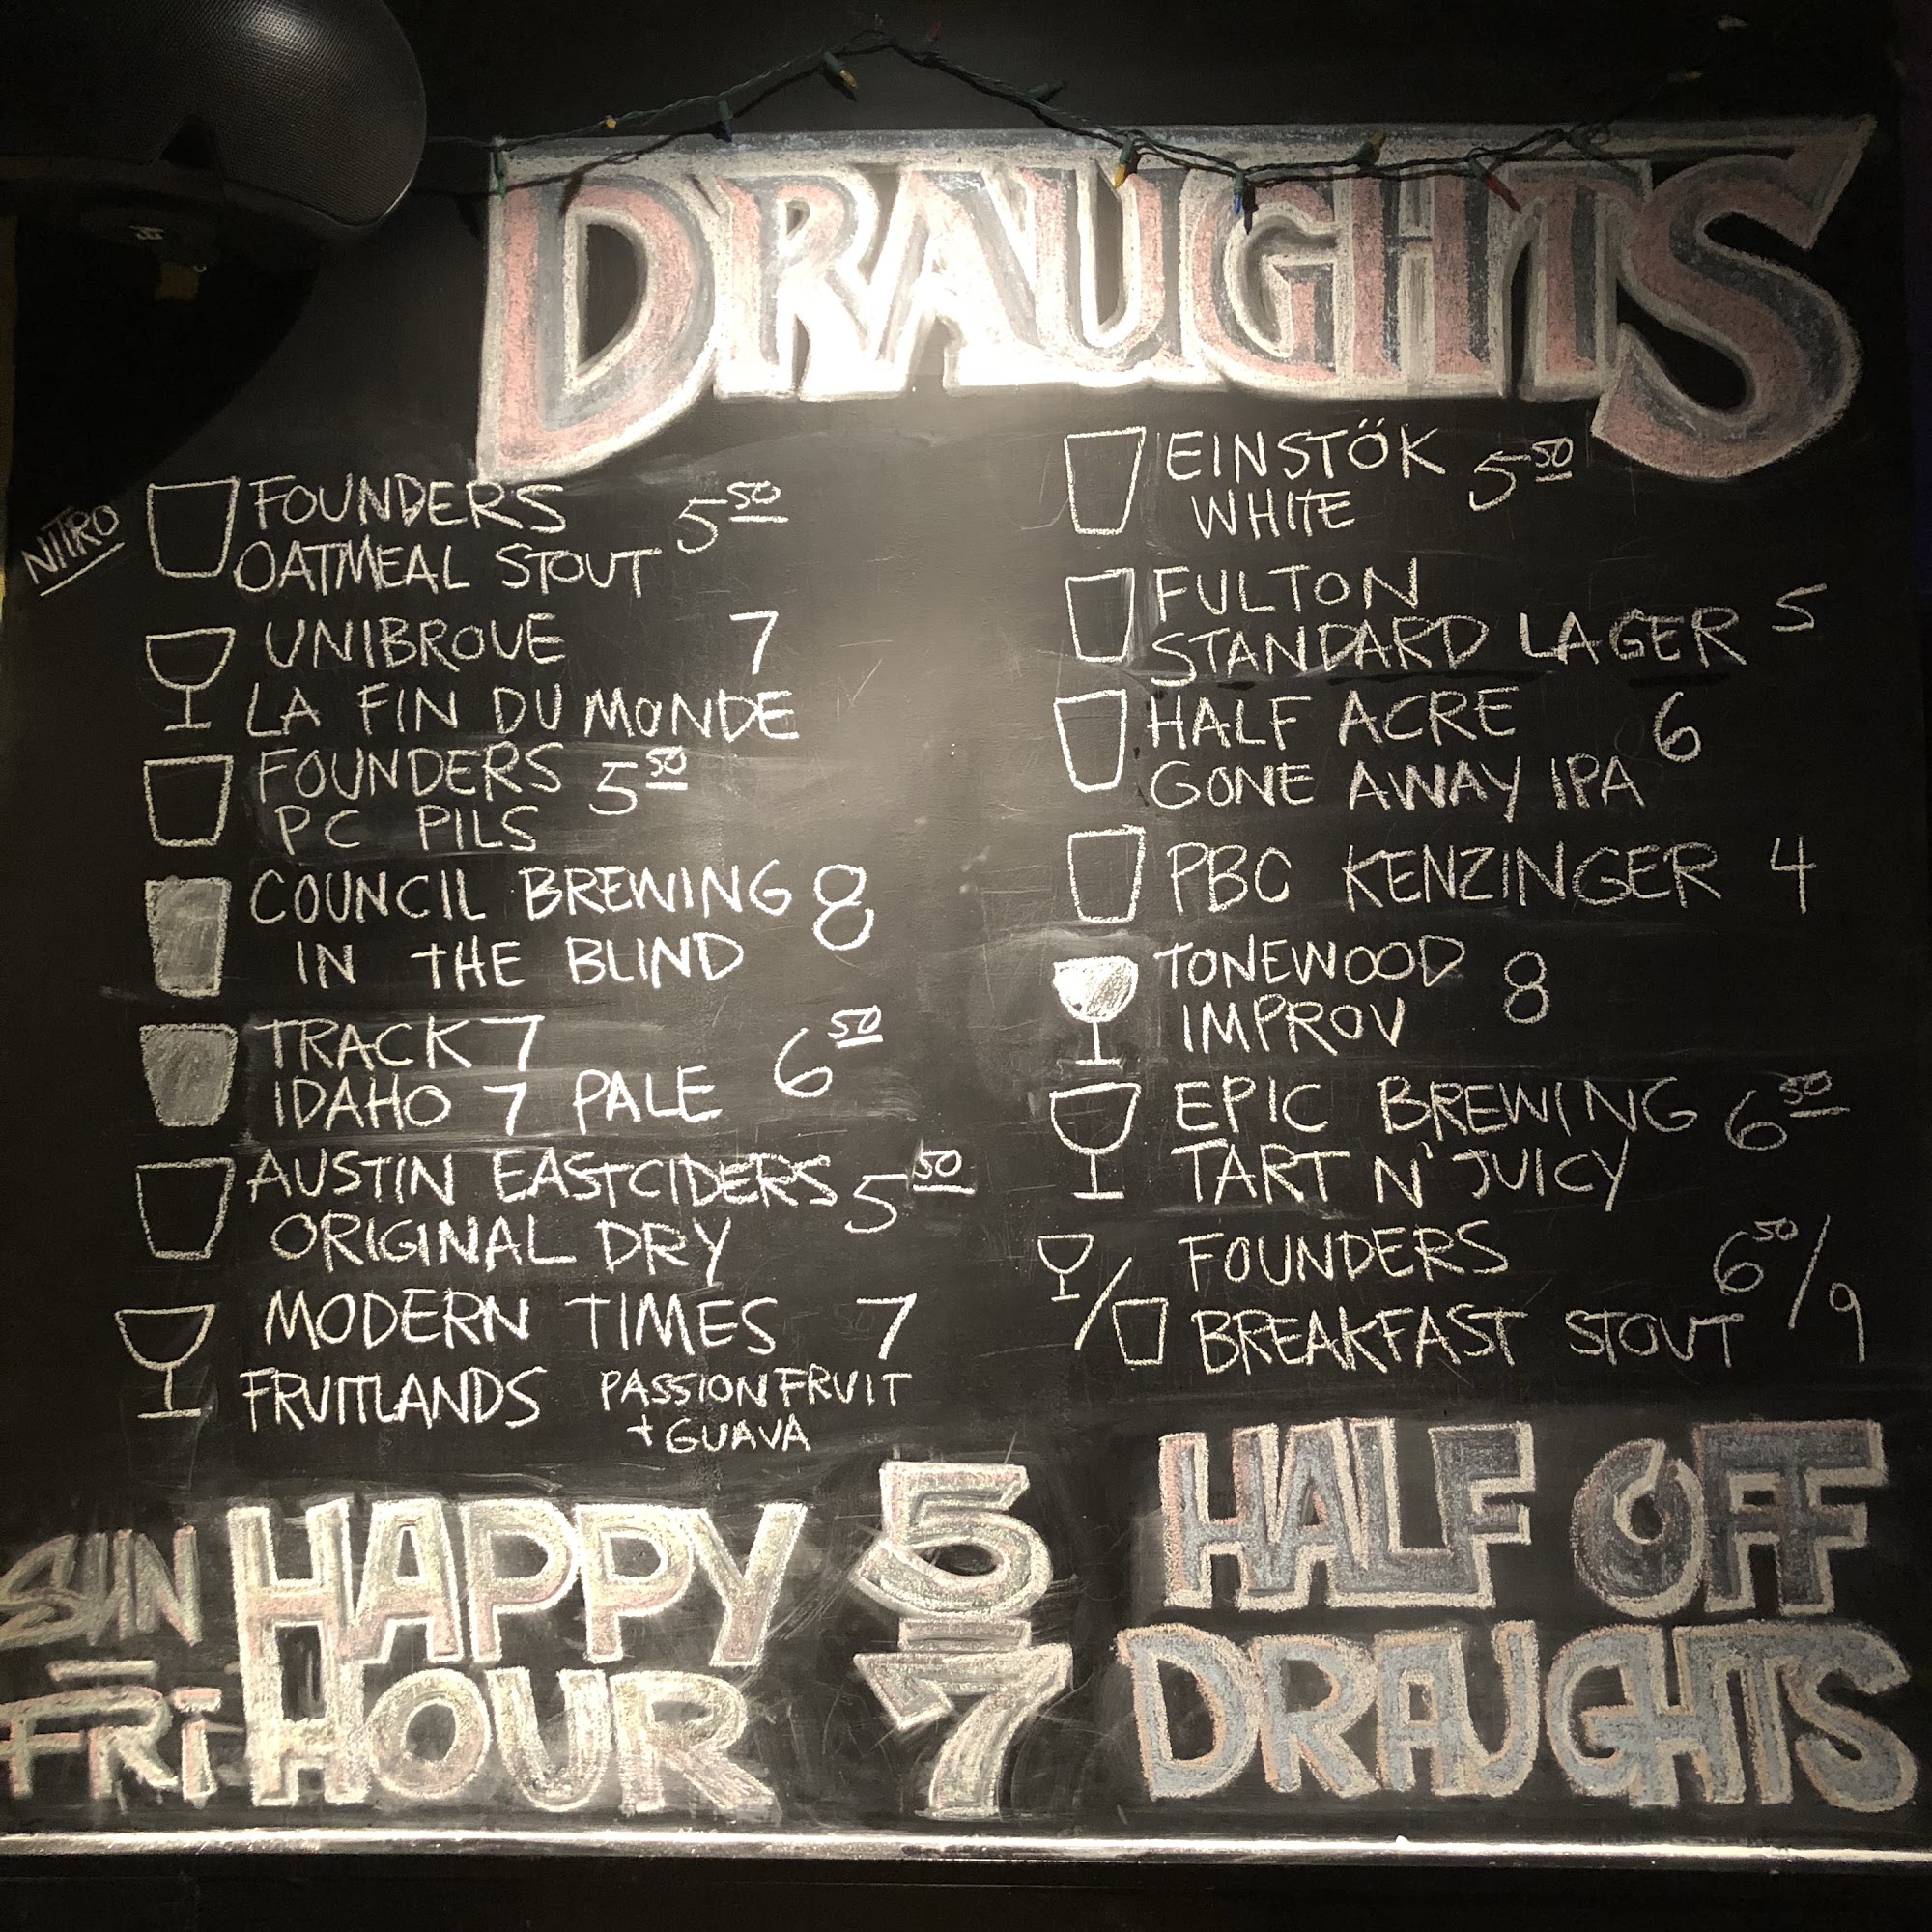 DRAUGHTS
NITRO
FOUNDERS 5 50
OATMEAL STOUT
UNIBROUE 7
LA FIN DU MONDE
FOUNDERS 5 50
PC PILS
COUNCIL BREWING 8
IN THE BLIND
TRACK 7 6 50
IDAHO 7 PALE
AUSTIN EASTCIDERS 5 50
ORIGINAL DRY
MODERN TIMES 7
FRUITLANDS PASSIONFRUIT
+ GUAVA
EINSTÖK 5 50
WHITE
FULTON
STANDARD LAGER 5
HALF ACRE 6
GONE AWAY IPA
PBC KENZINGER 4
TONEWOOD 8
IMPROV
EPIC BREWING 6 50
TART N' JUICY
FOUNDERS 6 50 / 9
BREAKFAST STOUT
SUN - FRI
HAPPY
HOUR
5 - 7
HALF OFF
DRAUGHTS